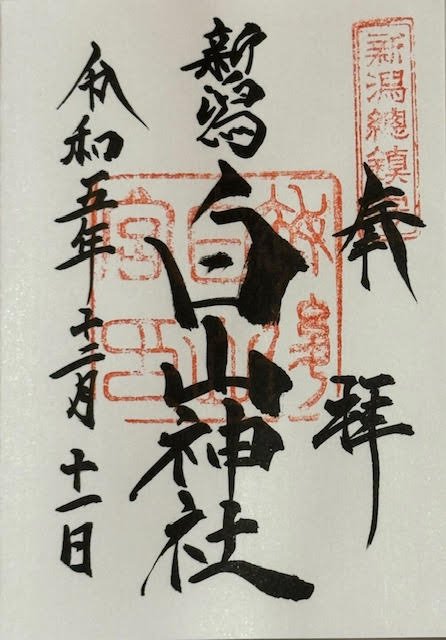 新潟總鎮守
奉拝
新潟
白山神社
令和五年十二月十一日
白山
宮